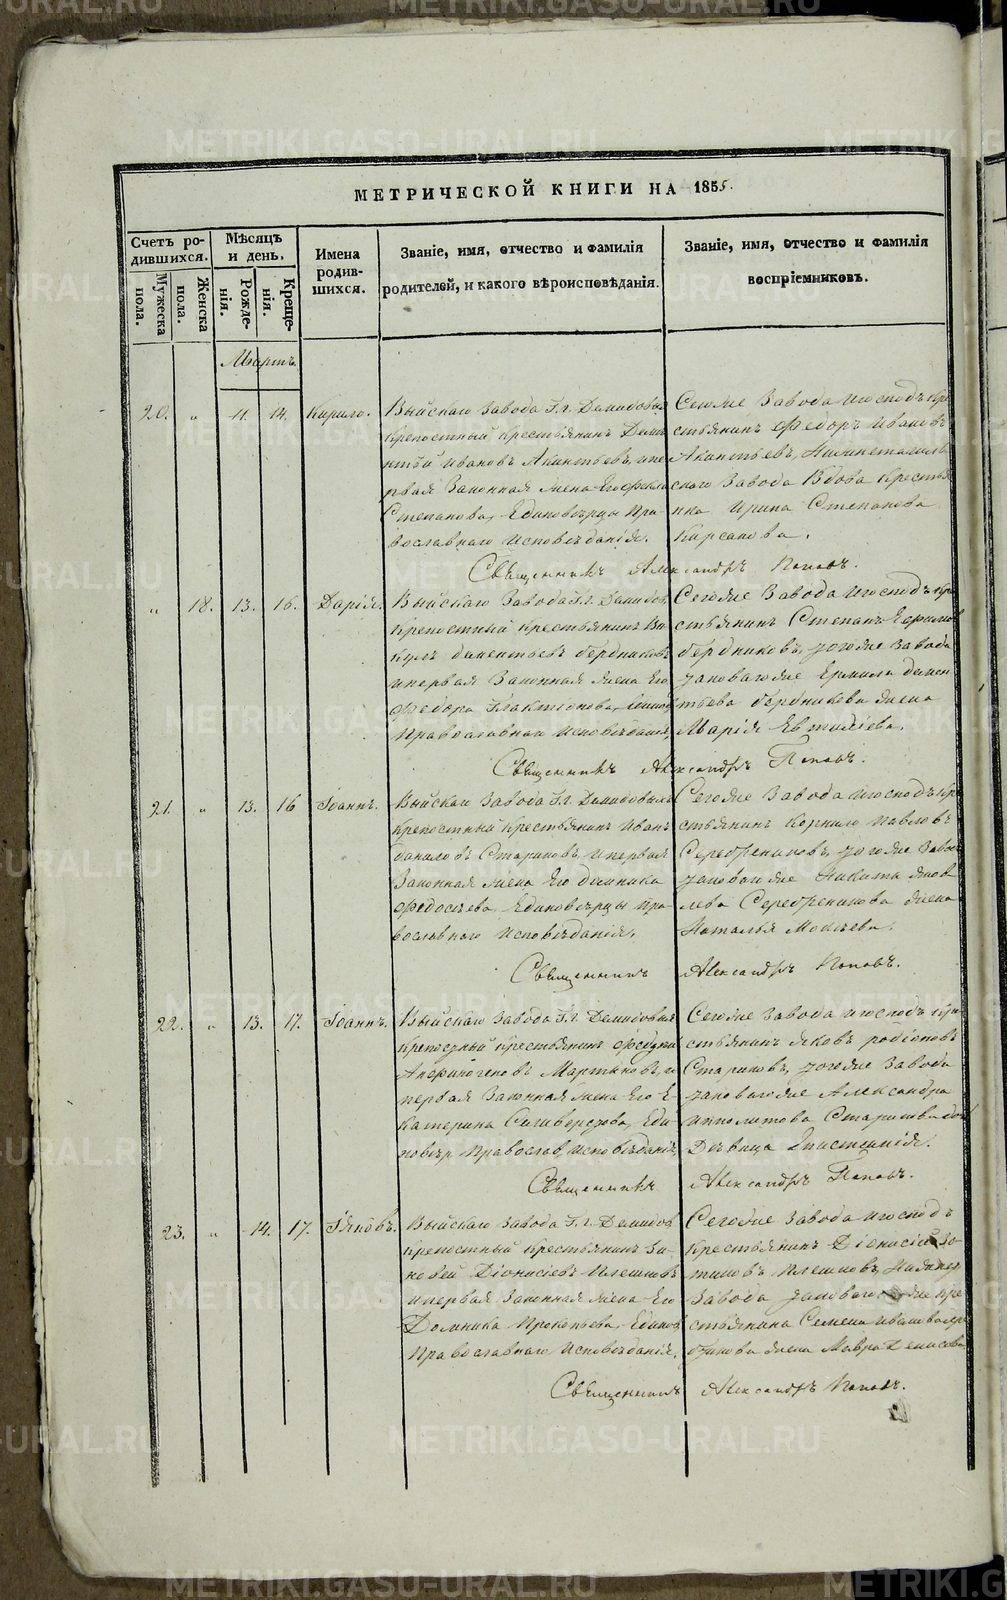 МЕТРИЧЕСКОЙ КНИГИ НА 1855.
Счетъ ро-
дившихся.
Мужеска
пола.
Женска
пола.
Мѣсяцъ
и день.
Рожде-
нія.
Креще-
нія.
Имена
родив-
шихся.
Званіе, имя, отчество и фамилія
родителей, и какого вѣроисповѣданія.
Званіе, имя, отчество и фамилія
воспріемниковъ.
Мартъ.
20. „ 11. 14. Кирило.
Выйскаго Завода Г.г. Демидовыхъ
крепостный крестьянинъ
Ивановъ Акинтьевъ, и пе
рвая Законная жена Его
Степанова, Единовѣрцы Пра-
вославнаго Исповѣданія.
Сегоже Завода и господъ кре
стьянинъ Федоръ Ивановъ
Акинтьевъ, Нижнетагиль
скаго Завода Вдова Крестья
нка Ирина Степанова
Кирсанова.
Священникъ Александръ Поповъ.
„ 18. 13. 16. Дарія.
Выйскаго Завода Г.г. Демидов.
Крепостный крестьянинъ Ви
кулъ Дементьевъ Бердниковъ
и первая Законная жена Его
Федора Галактіонова, Единов
Православнаго Исповѣданія,
Сегоже Завода и господъ кре
стьянинъ Степанъ Ефимов
Бердниковъ, тогоже Завода
заноговаже Ермила Демен
тьева Бердникова жена
Марія Евтихіева.
Священникъ Александръ Поповъ.
21. „ 13. 16 Іоаннъ.
Выйскаго Завода Г.г. Демидовыхъ
крепостный крестьянинъ Иванъ
Даниловъ Стариковъ, и первая
Законная жена Его Домника
Федосѣева, Единовѣрцы пра-
вославнаго Исповѣданія,
Сегоже Завода и господъ кре
стьянинъ Корнило Павловъ
Серебрениковъ, тогоже Завода
Никита Яков
лева Серебреникова жена
Наталья Моисѣева.
Священникъ Александръ Поповъ.
22. „ 13. 17. Іоаннъ.
Выйскаго Завода Г.г. Демидовыхъ
крепостный крестьянинъ Федулъ
Анфиногеновъ Мартьяновъ, и
первая Законная жена Его Е-
катерина Сигверстова, Еди-
новѣр. Православ. Исповѣданія,
Сегоже Завода и господъ кре
стьянинъ Яковъ Родіоновъ
Стариковъ, тогоже Завода
Александра
Ипполитова Старикова дочь
Дѣвица Анастасія.
Священникъ Александръ Поповъ.
23. „ 14. 17. Іяковъ.
Выйскаго Завода Г.г. Демидов
крепостный крестьянинъ Зи-
новей Діонисіевъ Плешковъ
и первая Законная жена Его
Домника Прокопьева, Единов
Православнаго Исповѣданія.
Сегоже Завода и господъ
крестьянинъ Діонисій Зо-
тиковъ Плешковъ,
Завода кре
стьянина Семена Иванова
жена Мавра Денисова
Священникъ Александръ Поповъ.
METRIKI.GASO-URAL.RU